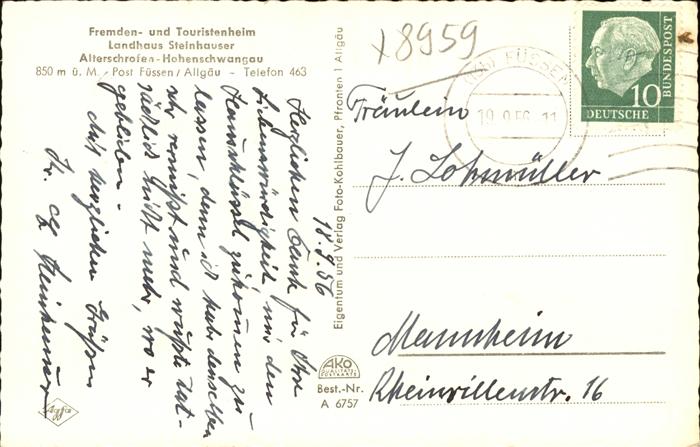 Fremden- und Touristenheim
Landhaus Steinhauser
Alterschrofen-Hohenschwangau
850 m ü. M. - Post Füssen/Allgäu - Telefon 463
18.9.56
Herzlichen Dank für Ihre
Liebenswürdigkeit mir den
Hausschlüssel zukommen zu
lassen, denn ich habe denselben
sehr vermißt und wußte tat-
sächlich nicht mehr, wo er
geblieben.
Mit herzlichen Grüßen
Steinhauser
Agfa
Eigentum und Verlag Foto-Kohlbauer, Pfronten i Allgäu
AKO
QUALITÄTS-
POSTKARTE
Best.-Nr.
A 6757
8959
FÜSSEN
19.9.56 11
10
DEUTSCHE
BUNDESPOST
Fräulein
J. Lohmüller
Mannheim
Rheinvillenstr. 16